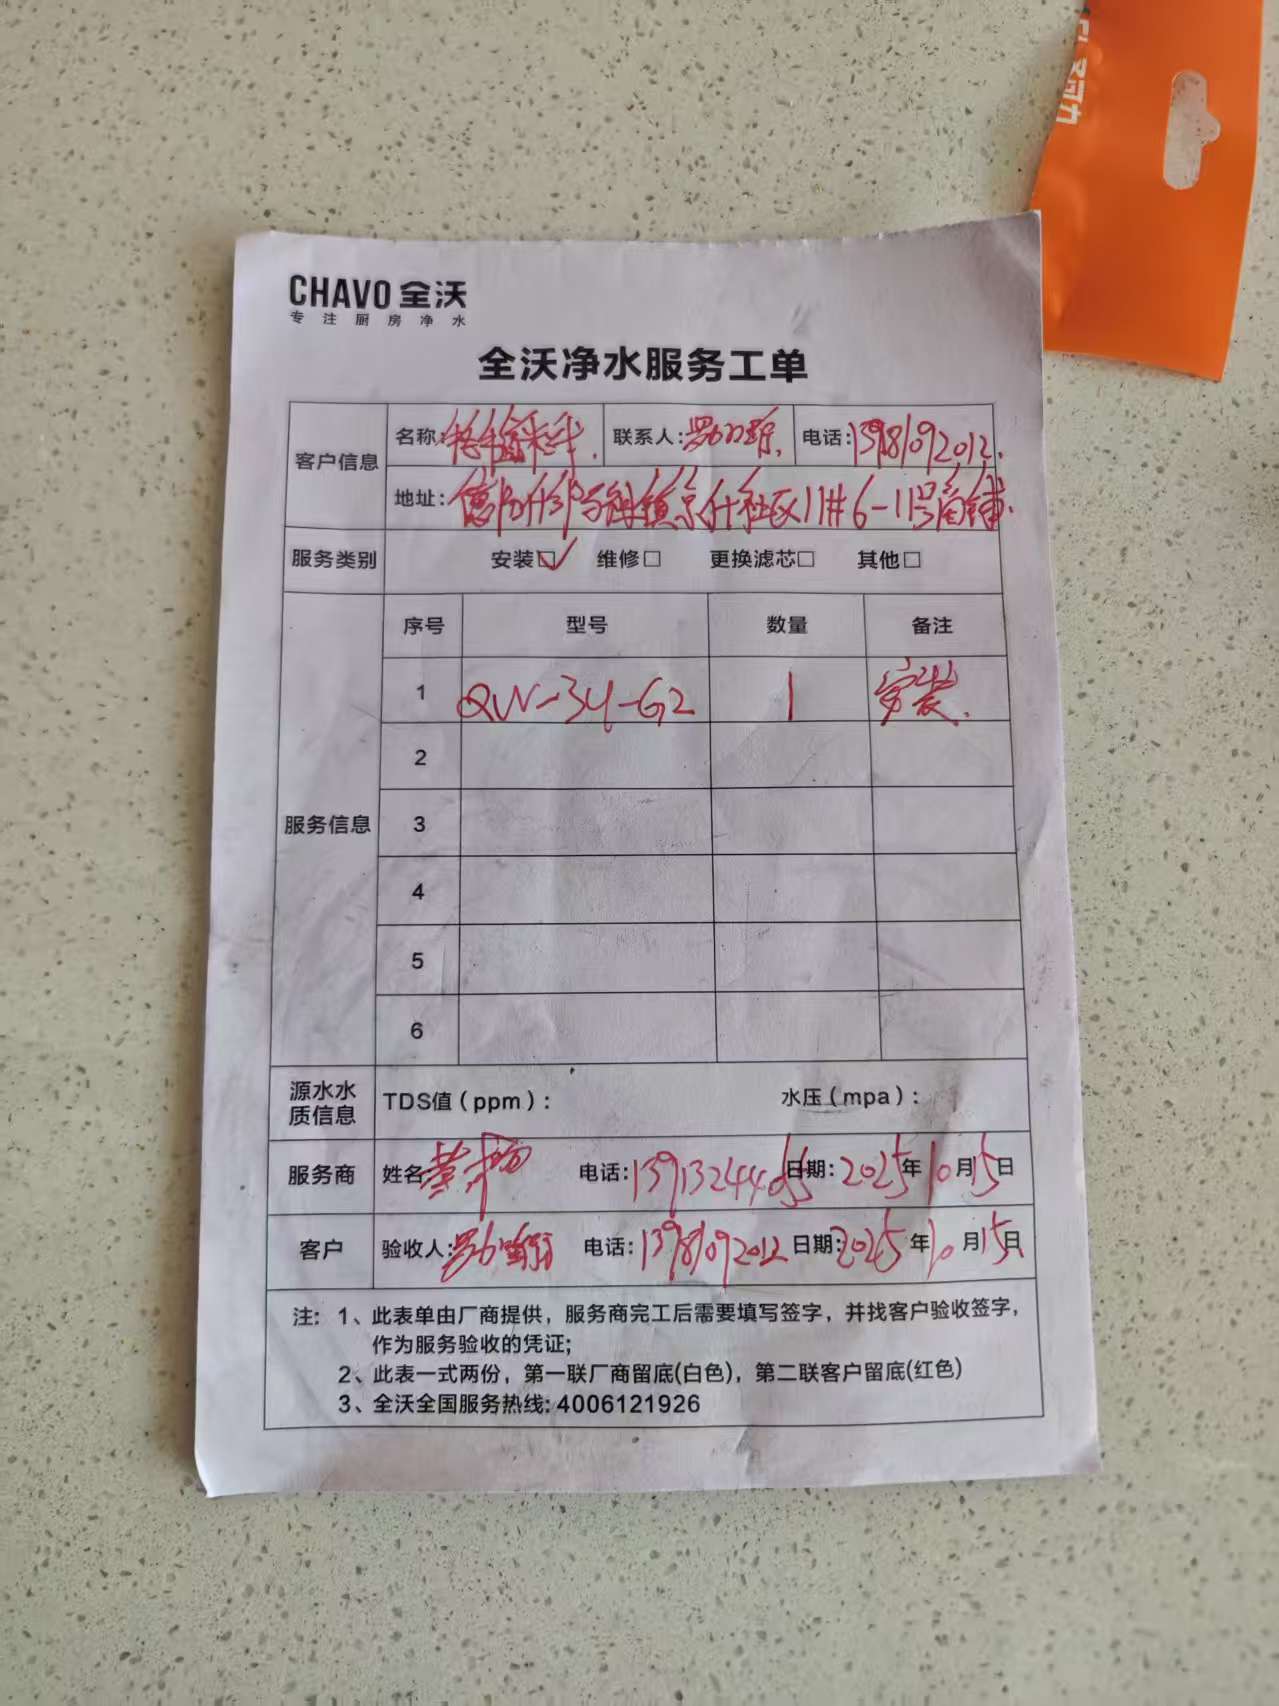 CHAVO 全沃
专注厨房净水
全沃净水服务工单
客户信息
名称: 联系人: 电话:13981092012.
地址: 11# 6-11号商铺.
服务类别 安装☑ 维修□ 更换滤芯□ 其他□
服务信息
序号 型号 数量 备注
1 QW-34-G2 1 安装.
2
3
4
5
6
源水水质信息 TDS值（ppm）: 水压（mpa）:
服务商 姓名 电话:13913244055 日期:2025年10月15日
客户 验收人: 电话:13981092012 日期:2025年10月15日
注: 1、此表单由厂商提供，服务商完工后需要填写签字，并找客户验收签字，
作为服务验收的凭证;
2、此表一式两份，第一联厂商留底(白色)，第二联客户留底(红色)
3、全沃全国服务热线: 4006121926